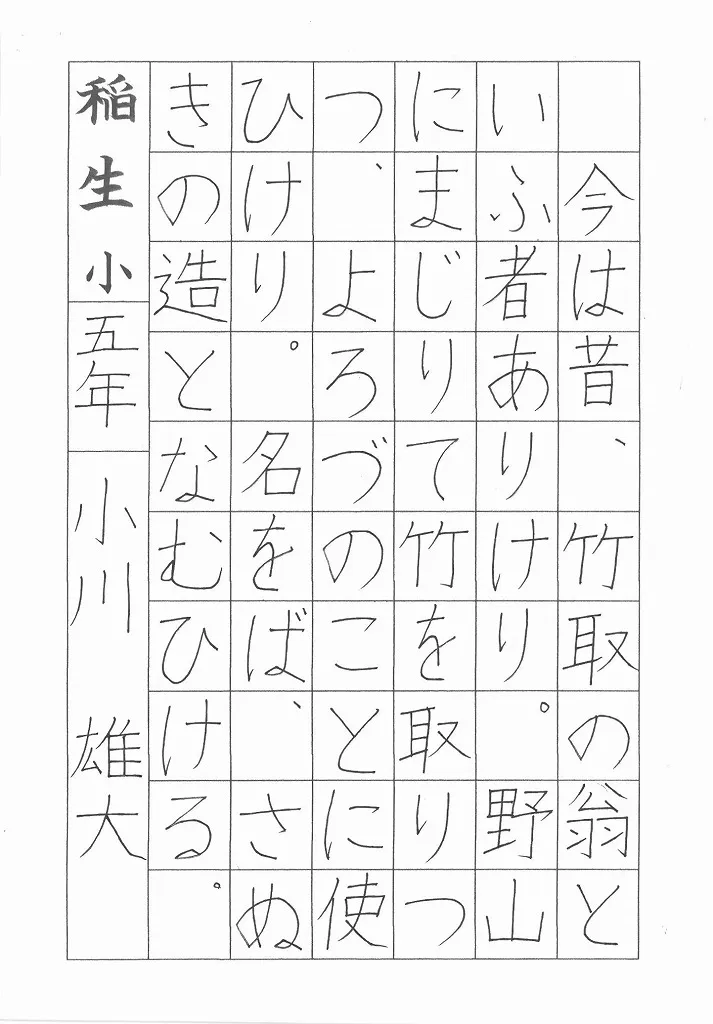 今は昔、竹取の翁と
いふ者ありけり。野山
にまじりて竹を取りつ
つ、よろづのことに使
ひけり。名をば、さぬ
きの造となむひける。
稲生小五年小川雄大